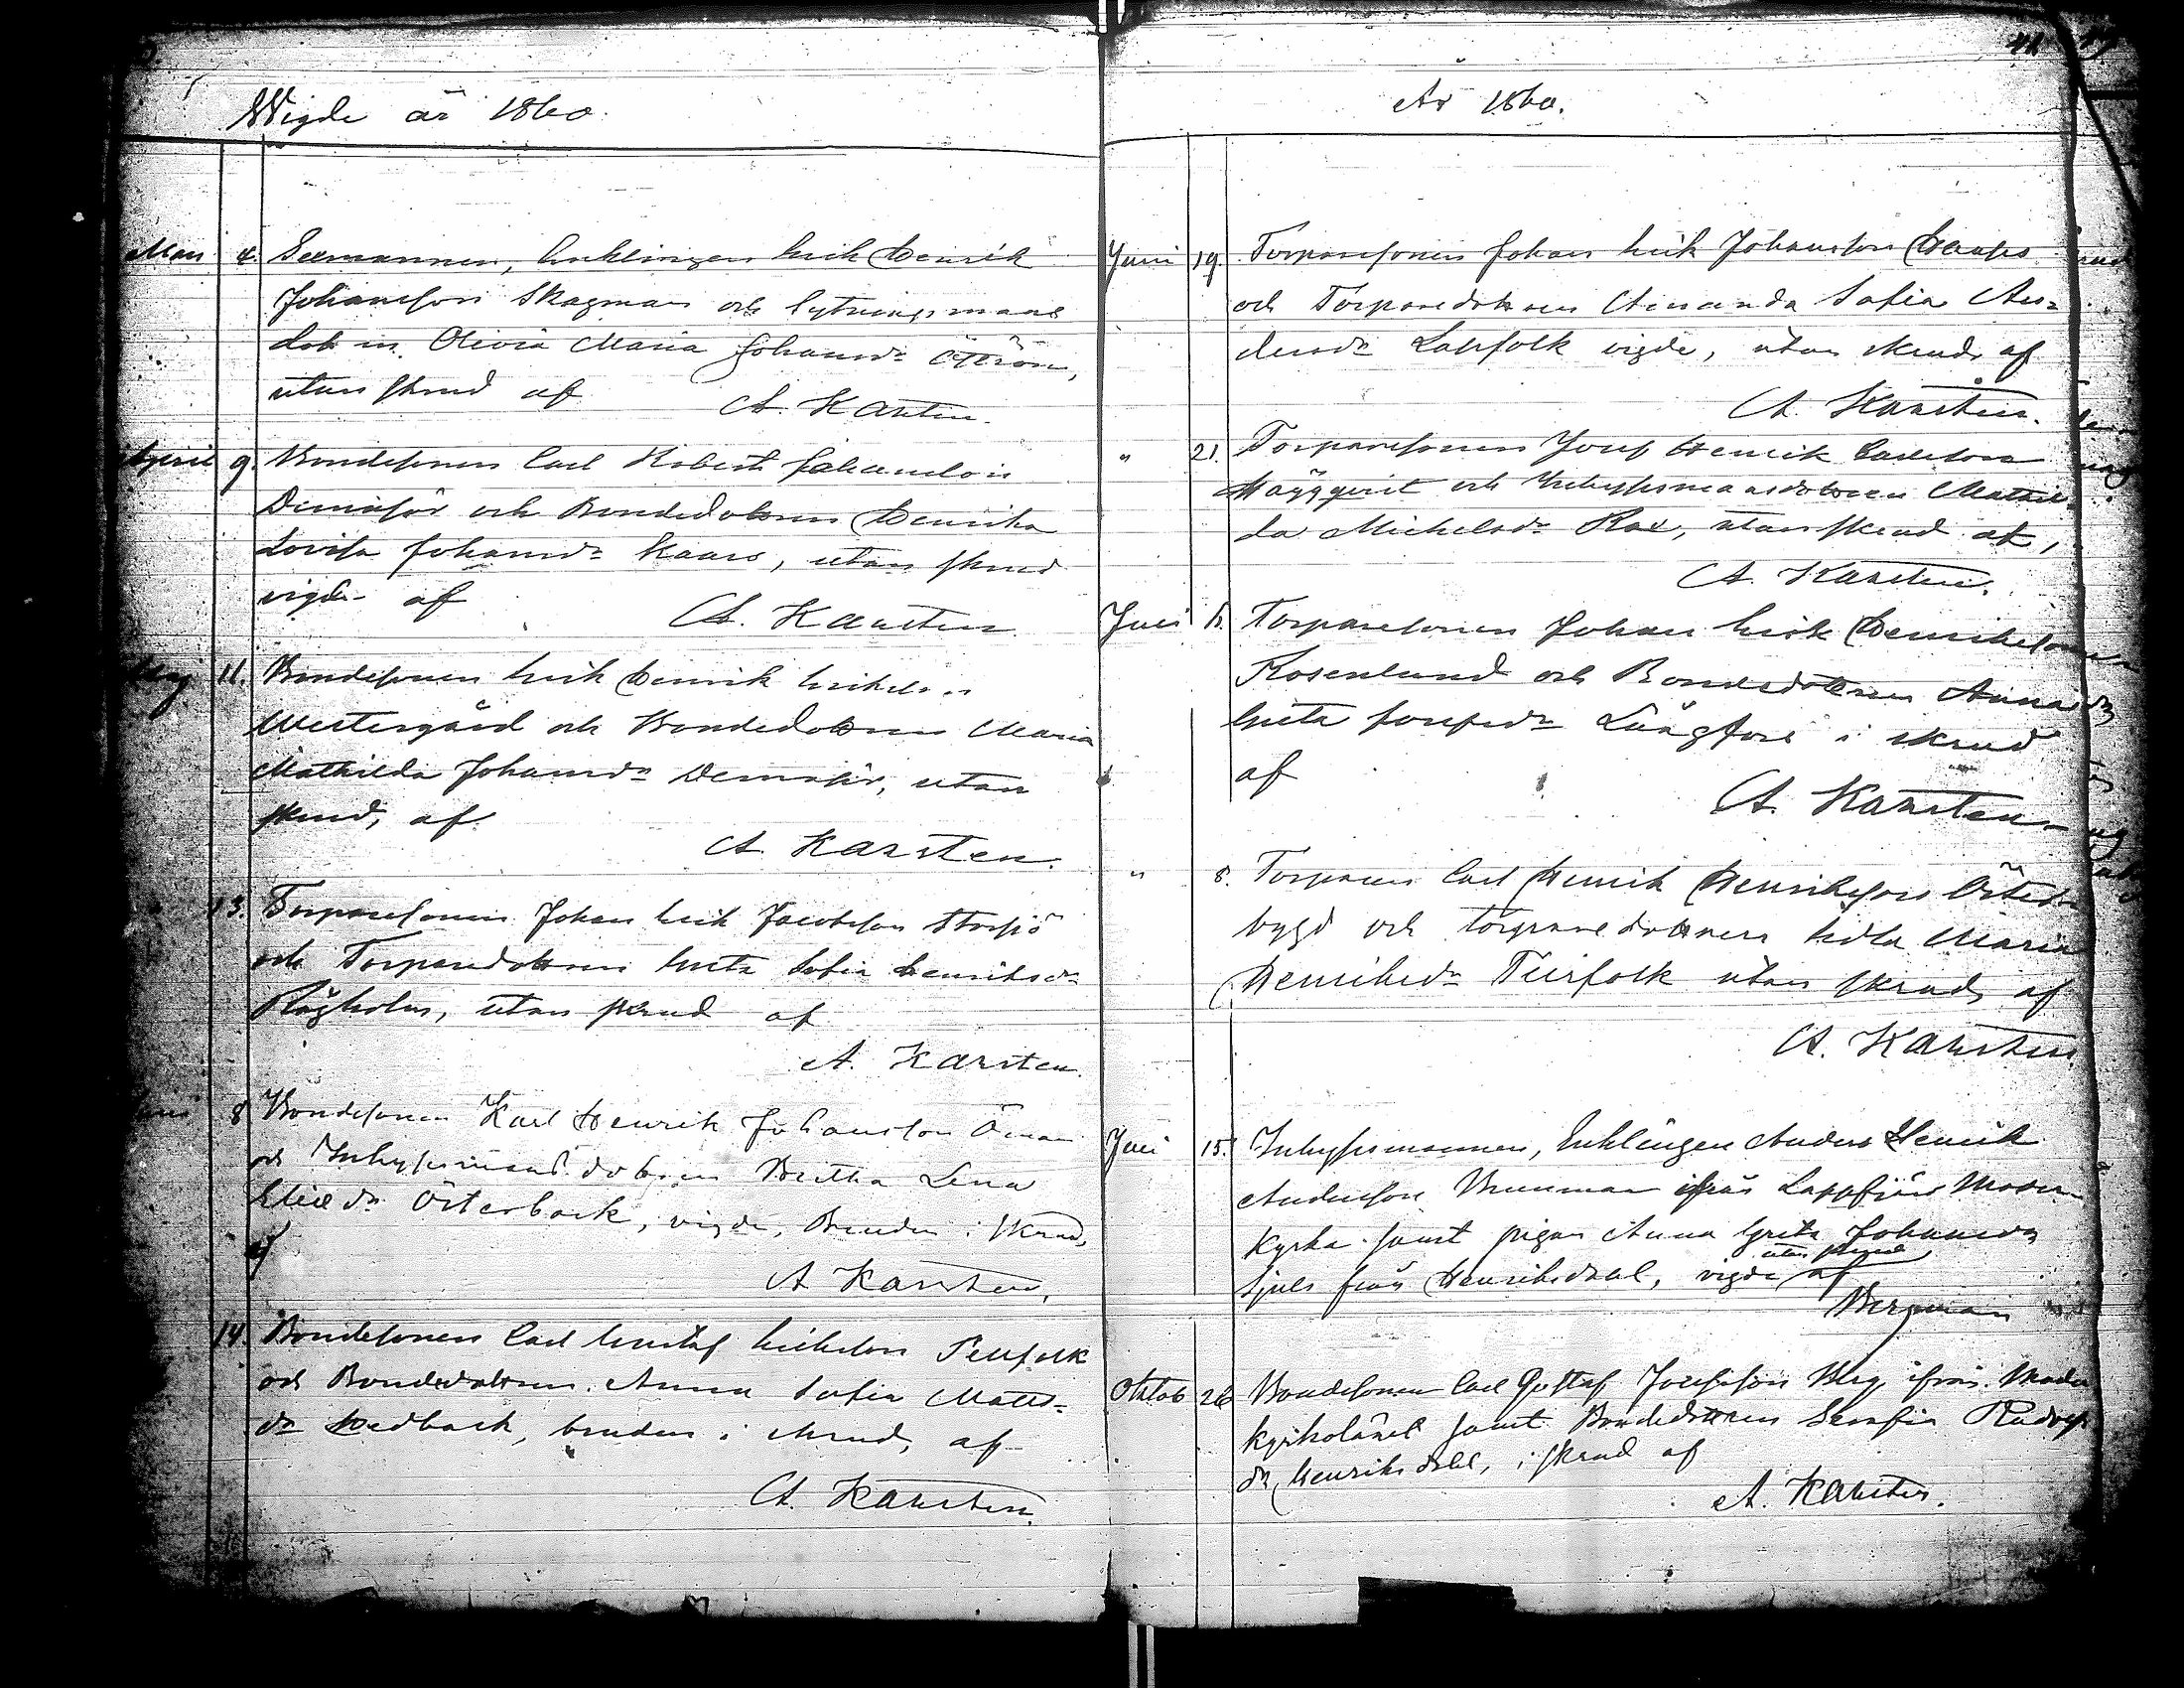 Wigde år 1860.
Mars 4. Seemannen, Enklingen Erik Henrik
Johansson Skagman och
dotren Olivia Maria Johansdr Åström,
utan skrud af A. Karsten.
April 9. Bondesonen Carl Robert Johansson
och Bondedottren Henrika
Lovisa Johansdr Kaars, utan skrud
vigde af A. Karsten.
Maj 11. Bondesonen Erik Henrik Erikson
Westergård och Bondedottren Maria
Mathilda Johansdr utan
skrud, af
A. Karsten.
13. Torparesonen Johan Erik Jacobsson Storsjö
och Torparedottren Greta Sofia Henriksdr
Rågholm, utan skrud af
A. Karsten.
8 Bondesonen Karl Henrik Johansson Öman
och Inhysesmansdotren Britha Lena
Eliedr Österback, vigde, Bruden i skrud,
af
A Karsten,
14. Bondesonen Carl Gustaf Erikson
och Bondedottren Anna Sofia Matts-
dr Hedback, bruden i skrud, af
A. Karsten.
År 1860.
Juni 19. Torparesonen Johan Erik Johansson
och Torparedottren Amanda Sofia An-
dersdr Lappfolk vigde, utan skrud af
A. Karsten.
" 21. Torparesonen Josef Henrik Carlsson
Häggqvist och Inhysesmansdottren Mathil-
da Michelsdr Rax, utan skrud af,
A. Karsten.
Juli Torparesonen Johan Erik Henrikson
Rosenlund och Bondedottren Anna
Greta Josefsdr Långfors i skrud
af
A. Karsten.
" 8. Torparen Carl Henrik Henriksson Öster-
bygd och torparedottren Maria
Henriksdr utan skrud, af
A. Karsten
Juli 15. Inhysesmannen, Enklingen Anders Henrik
Andersson Brunman ifrån Lappfjärd Moder-
kyrka samt pigan Anna Greta Johansdr
utan skrud
från Henriksdahl, vigde af
Bergman
Oktob 26 Bondesonen Carl Gustaf Josefsson ifrån Moder
kyrkolänet samt Bondedottren Serafia
dr Henriksdahl, i skrud af
A. Karsten.